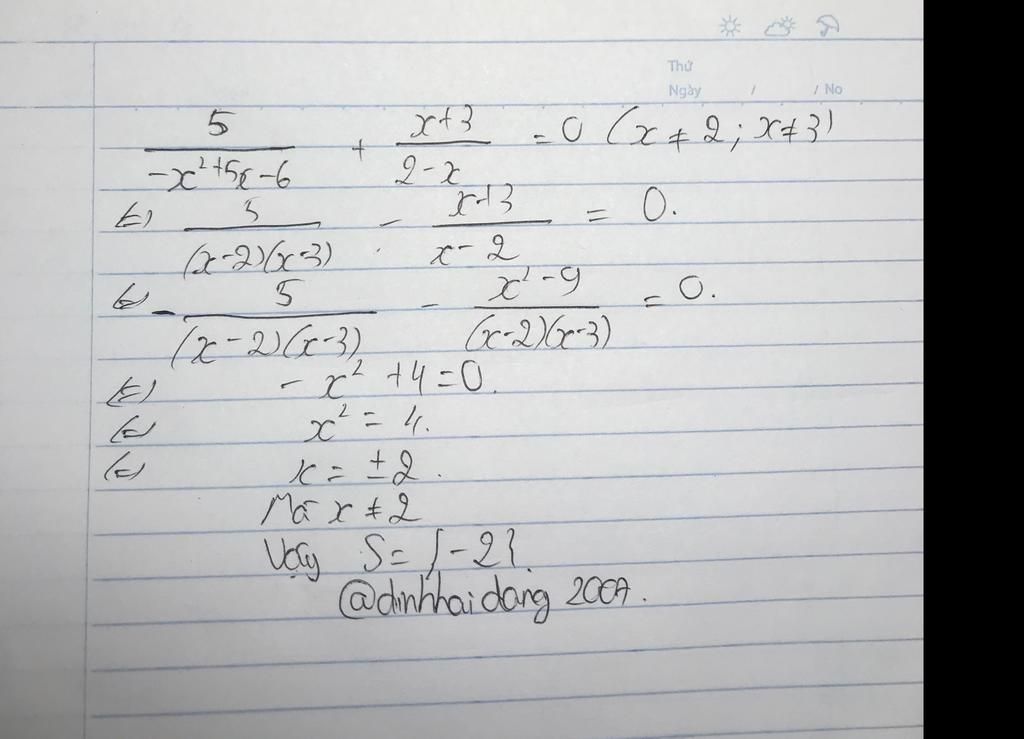 Thứ
Ngày / / No
5/(-x²+5x-6) + (x+3)/(2-x) = 0 (x ≠ 2; x ≠ 3)
(=) 5/((x-2)(x-3)) - (x+3)/(x-2) = 0.
(=) - 5/((x-2)(x-3)) - (x²-9)/((x-2)(x-3)) = 0.
(=) - x² + 4 = 0.
(=) x² = 4.
(=) x = ± 2.
Mà x ≠ 2
Vậy S = {-2}.
@dinhhaidang 2007.